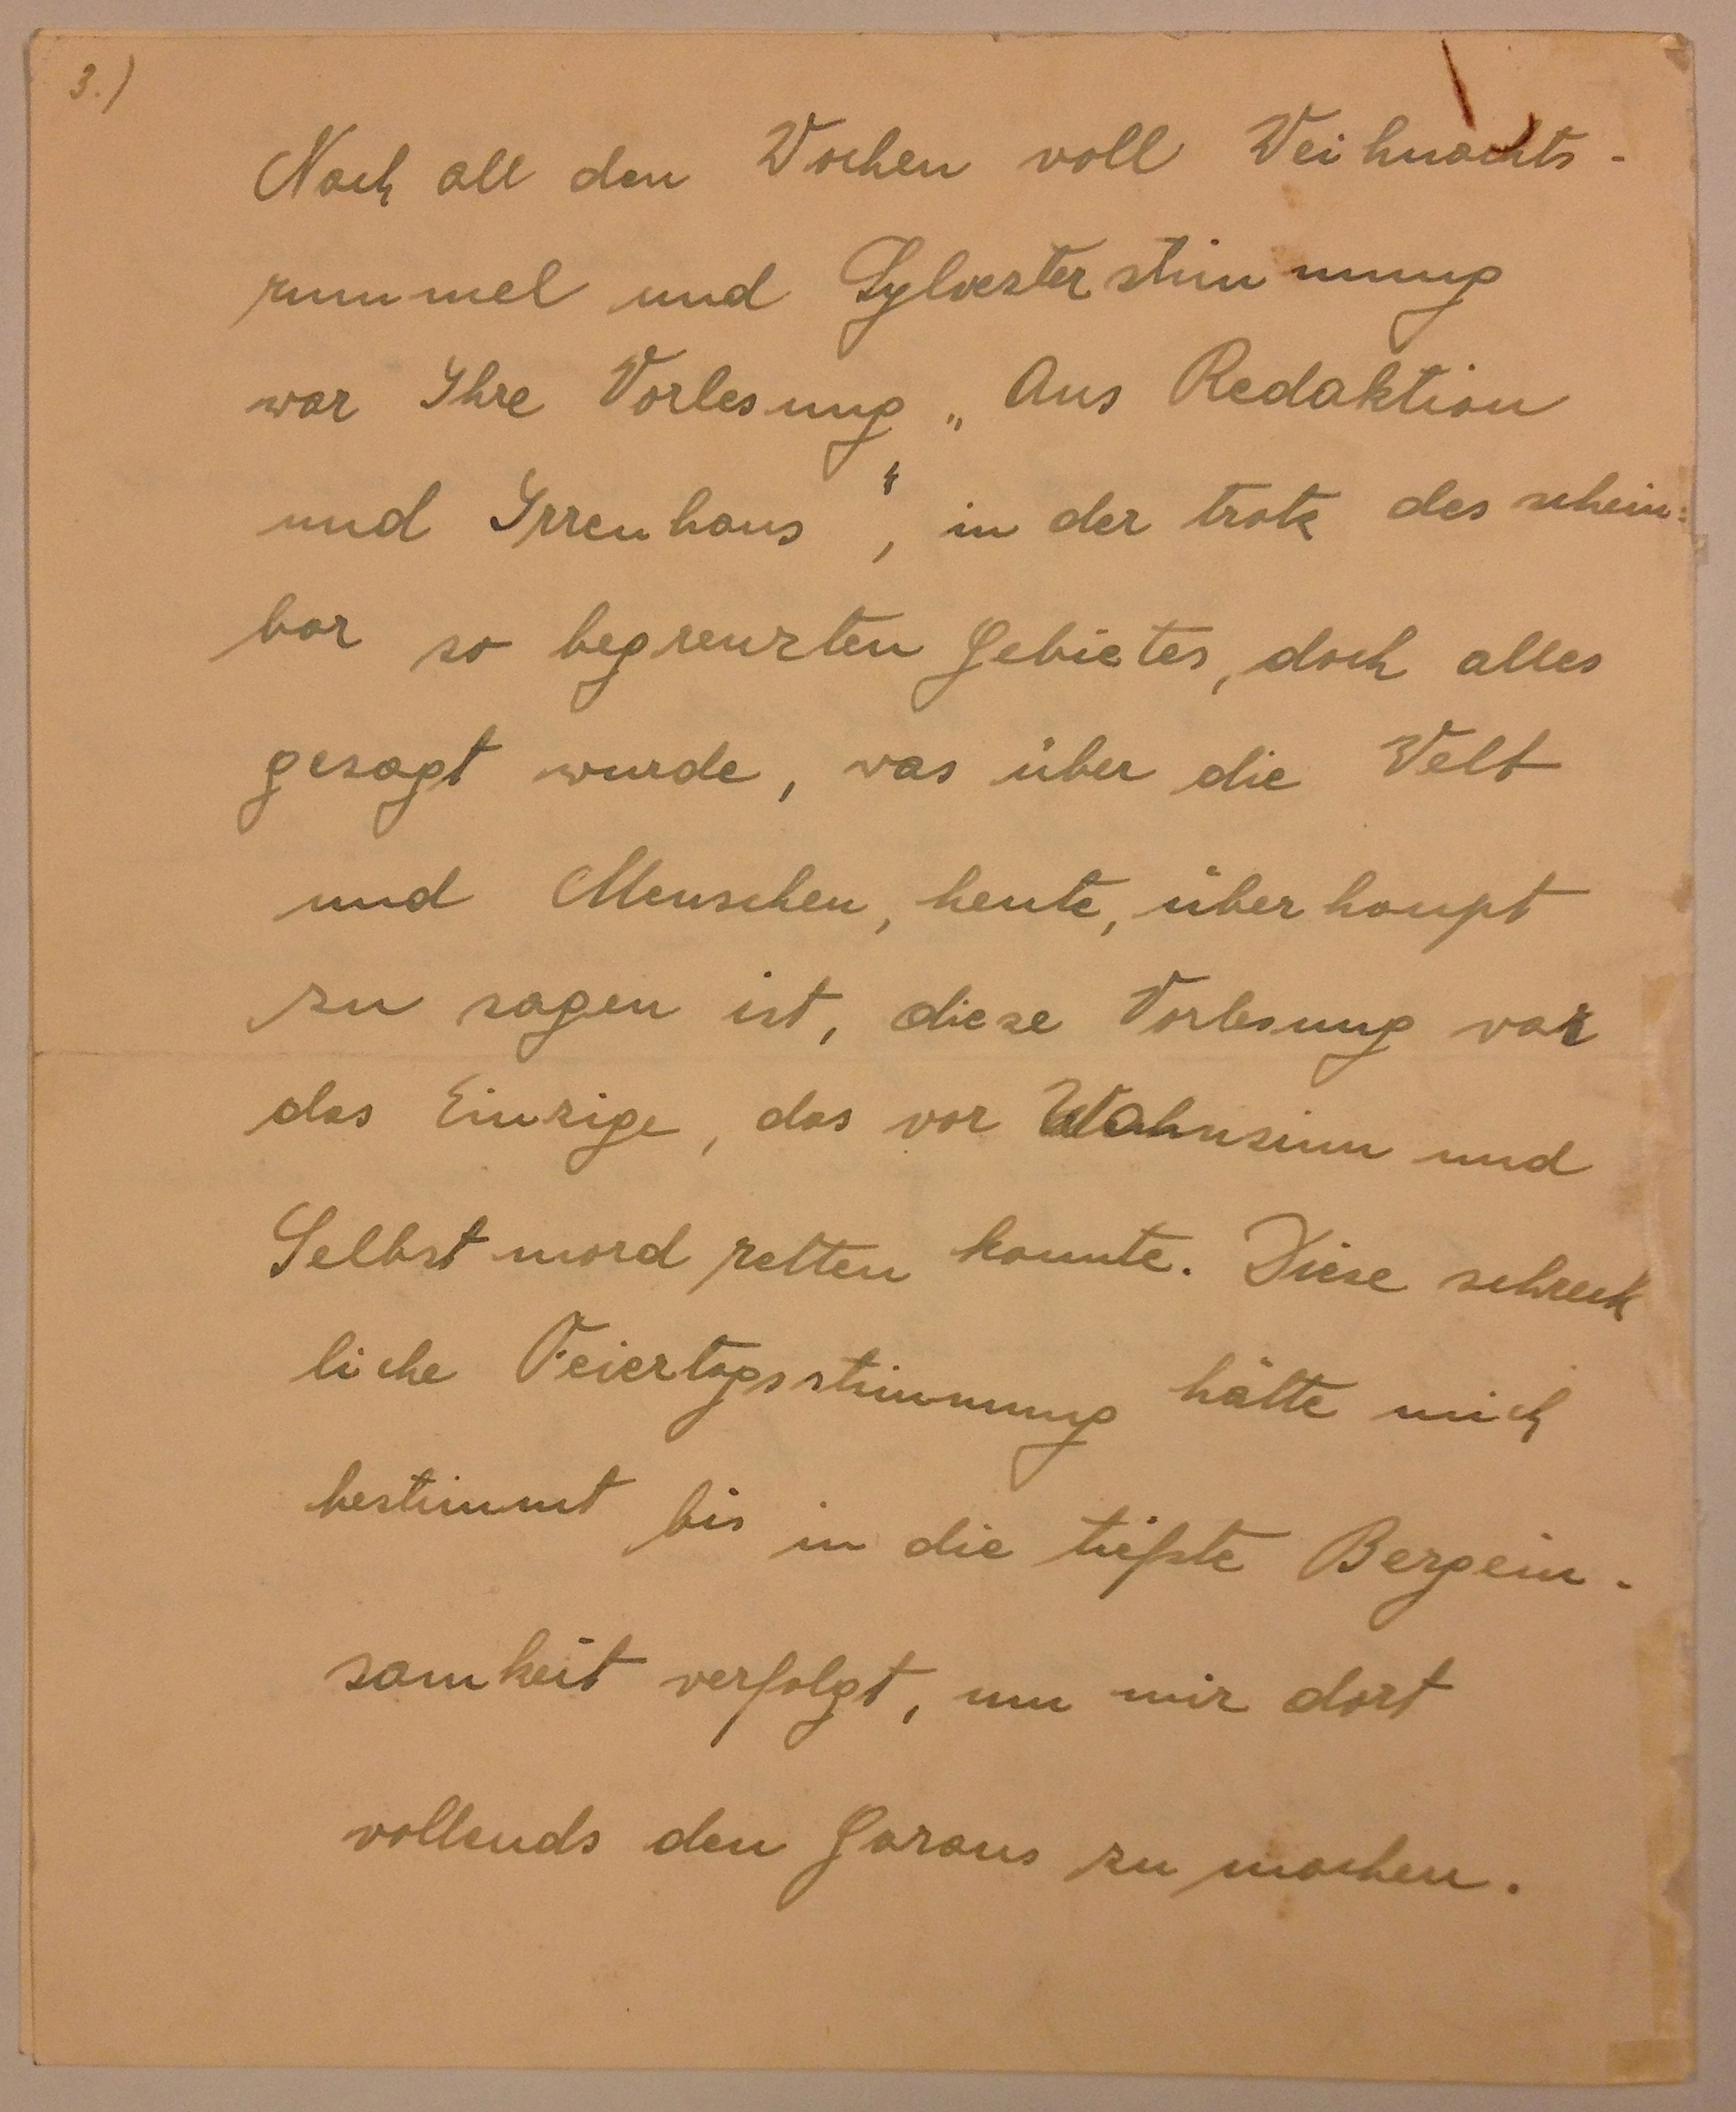 3.)
Nach all den Wochen voll Weihnachts-
rummel und Sylvesterstimmung
war Ihre Vorlesung „Aus Redaktion
und Irrenhaus“, in der trotz des schein=
bar so begrenzten Gebietes, doch alles
gesagt wurde, was über die Welt
und Menschen, heute, überhaupt
zu sagen ist, diese Vorlesung war
das Einzige, das vor Wahnsinn und
Selbstmord retten konnte. Diese schreck
liche Feiertagsstimmung hätte mich
bestimmt bis in die tiefste Bergein-
samkeit verfolgt, um mir dort
vollends den Garaus zu machen.